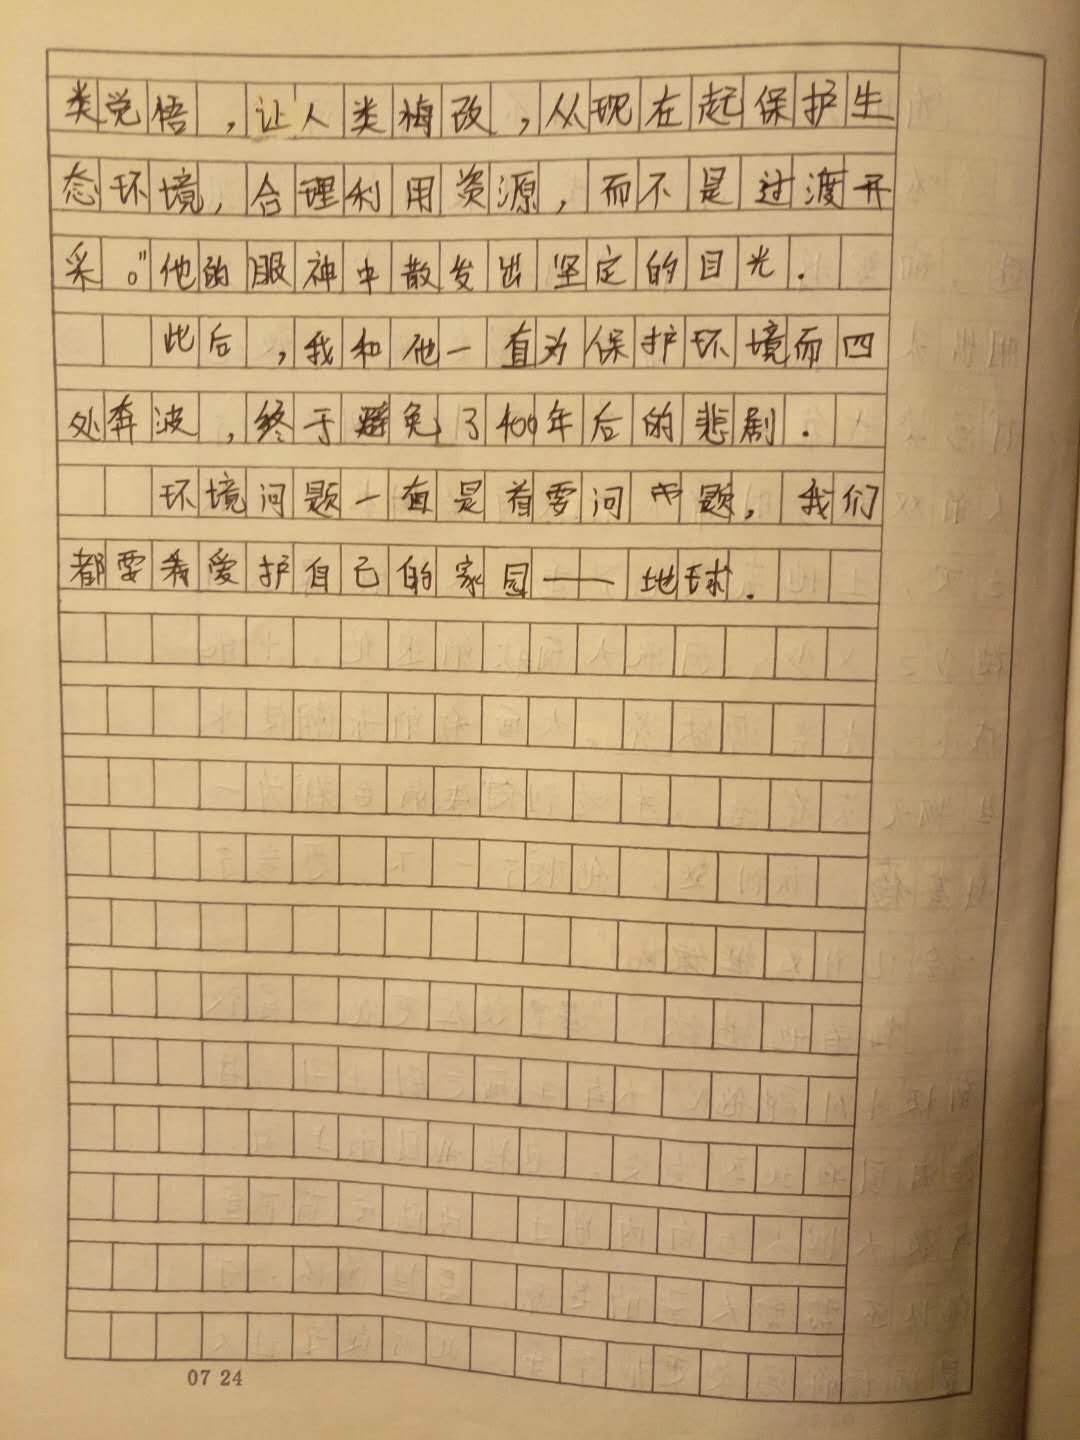 类觉悟，让人类悔改，从现在起保护生
态环境，合理利用资源，而不是过渡开
采。”他的眼神中散发出坚定的目光．
此后，我和他一直为保护环境而四
处奔波，终于避免了400年后的悲剧．
环境问题一直是首要问题，我们
都要爱护自己的家园——地球．
07 24